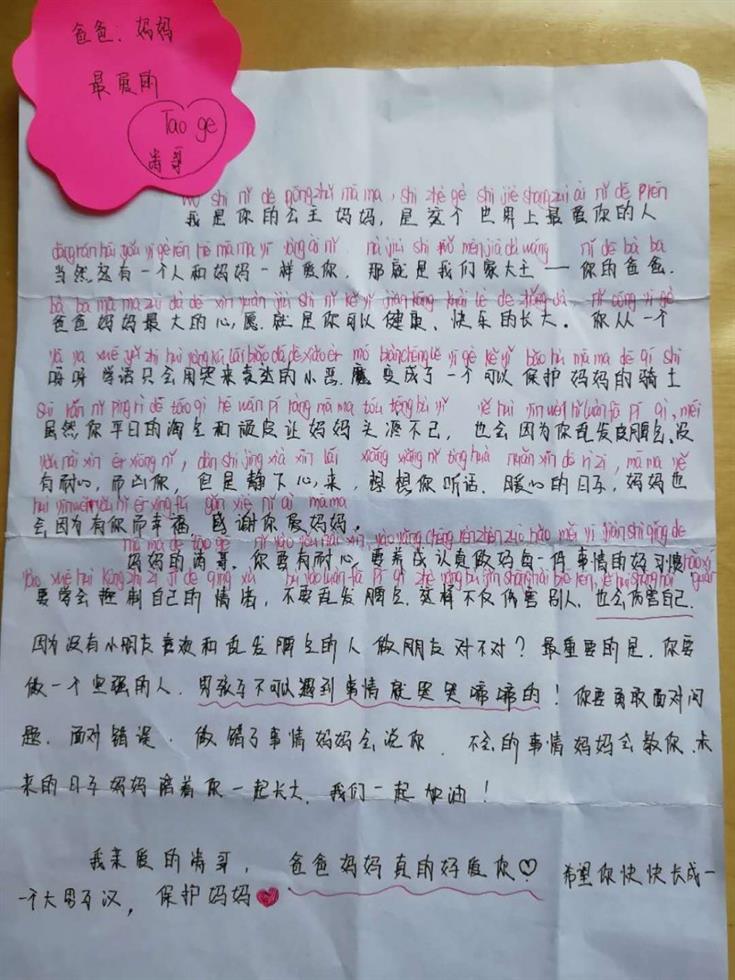 爸爸.妈妈
最爱的
Tao ge
涛哥
shì nǐ de gōng zhǔ mā ma, shì zhè gè shì jiè shang zuì ài nǐ dē rén
我是你的公主妈妈,是这个世界上最爱你的人
dāng rán hái yǒu yī gè rén hé mā ma yí yàng ài nǐ nà jiù shì wǒ mén jiā dà wáng nǐ dē bà ba
当然还有一个人和妈妈一样爱你.那就是我们家大王——你的爸爸.
bà ba mā ma zuì dà dē xīn yuàn jiù shì nǐ kě yǐ jiàn kāng kuài lè de zhǎng dà nǐ cóng yī gè
爸爸妈妈最大的心愿.就是你可以健康、快乐的长大。你从一个
yā ya xué yǔ zhǐ huì yòng kū lái biǎo dá dē xiǎo è mó biàn chéng lē yī gè kě yǐ bǎo hù mā ma dē qí shì
呀呀学语只会用哭来表达的小恶.魔变成了一个可以保护妈妈的骑士
suī rán nǐ píng rì dē táo qì hē wán pí ràng mā ma tóu téng bù yǐ yě huì yīn wèi nǐ luàn fā pí qì, méi
虽然你平日的淘气和顽皮让妈妈头疼不已,也会因为你乱发皮脾气,没
yǒu nài xīn ér xiōng nǐ, dàn shì jìng xià xīn lái xiǎng xiǎng nǐ tīng huà nuǎn xīn dē rì zi, mā ma yě
有耐心,而凶你,但是静下心,来,想想你听话.暖心的日子,妈妈也
huì yīn wèi yǒu nǐ ér xìng fú gǎn xiè nǐ ài mā ma
会因为有你而幸福.感谢你爱妈妈.
mā ma dē tāo gē nǐ yào yǒu nài xīn yào yǎng chéng rèn zhēn zuò hǎo měi yī jiàn shì qíng de
妈妈的涛哥.你要有耐心.要养成认真做妈每一件事情的好习惯
hǎo xí guàn
yào xué huì kòng zhì zì jǐ de qíng xù bú yào luàn fā pí qì zhè yàng bù jǐn shāng hài bié rén, yě huì shāng hài
要学会控制自己的情绪,不要乱发脾气.这样不仅伤害别人,也会伤害自己.
因为没有小朋友喜欢和乱发脾气的人做朋友对不对?最重要的是.你要
做一个坚强的人.男孩子不可以遇到事情就哭哭啼啼的!你要勇敢面对问
题.面对错误.做错了事情妈妈会说你.不会的事情妈妈会教你.未
来的日子妈妈陪着你一起长大.我们一起加油!
我亲爱的涛哥,爸爸妈妈真的好爱你♡希望你快快长成一
一个大男子汉,保护妈妈♥